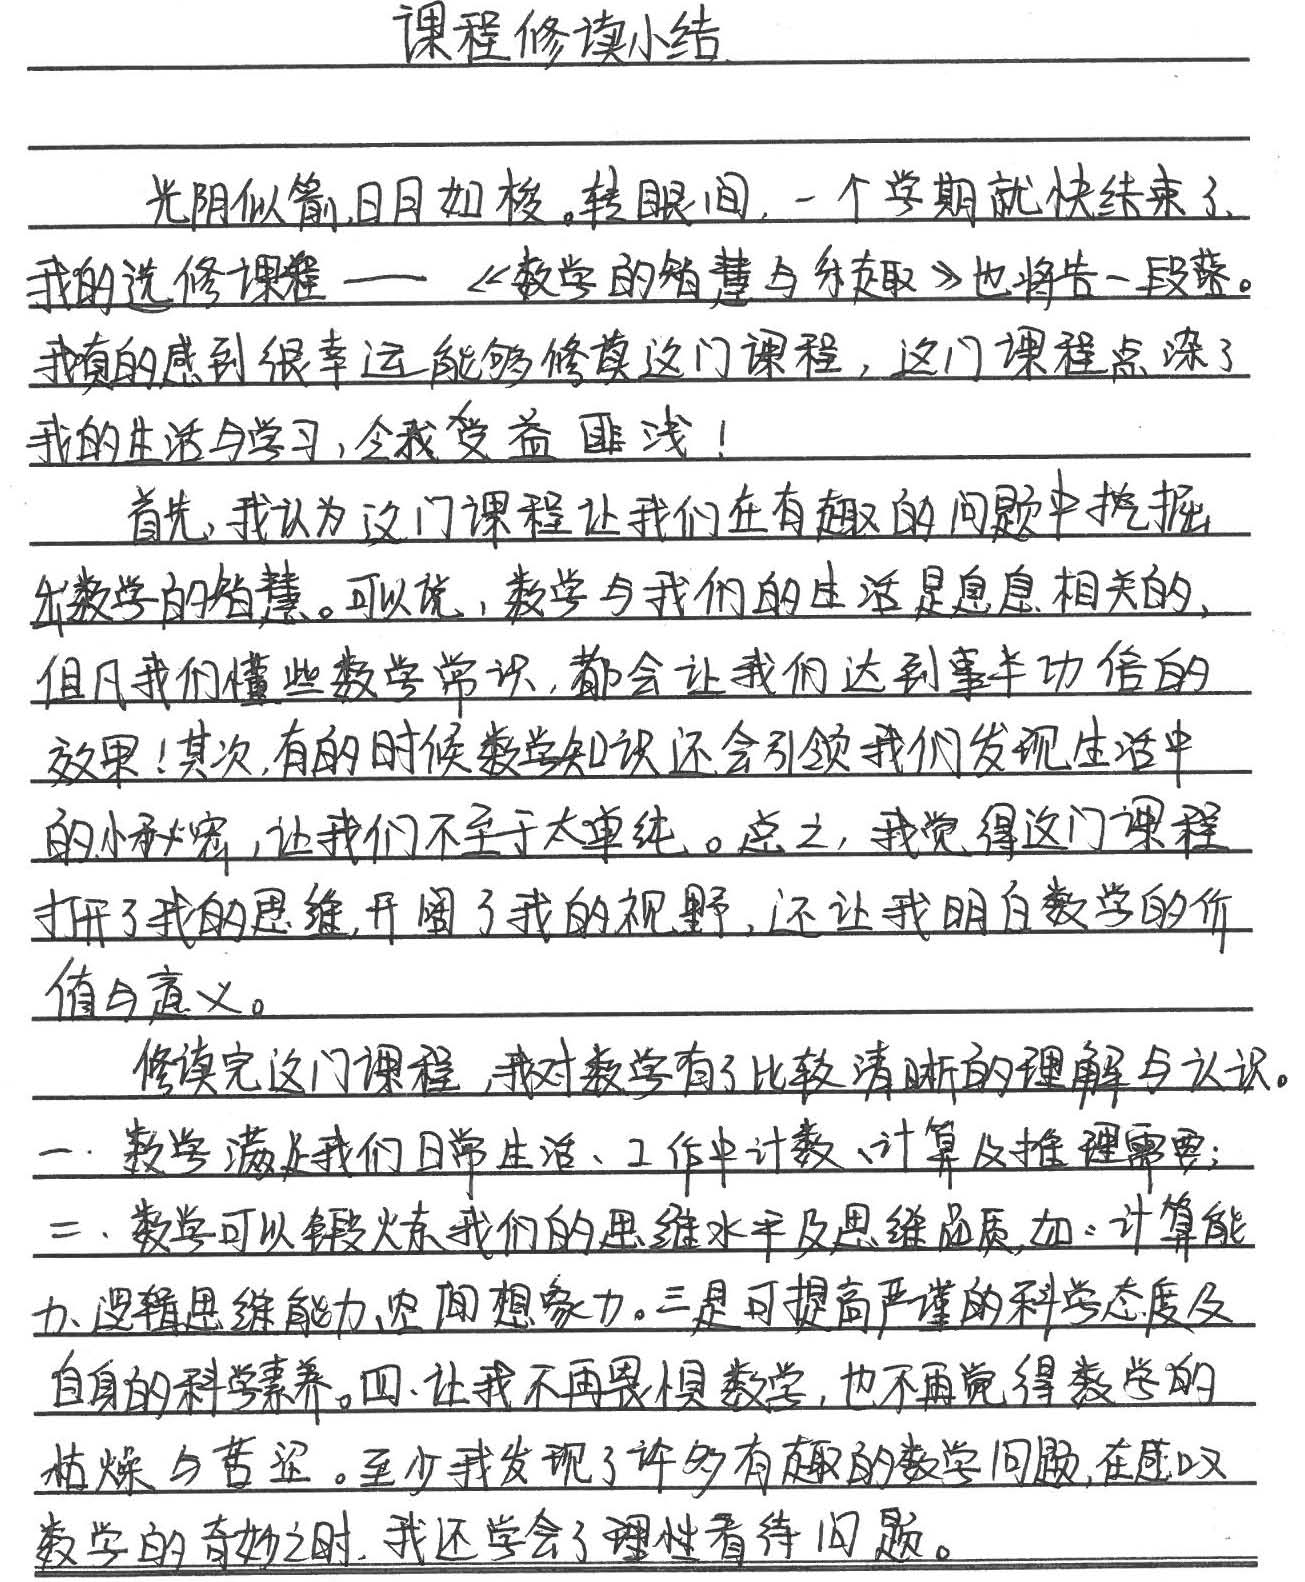 课程修读小结
光阴似箭,日月如梭。转眼间,一个学期就快结束了,
我的选修课程——《数学的智慧与乐趣》也将告一段落。
我真的感到很幸运能够修读这门课程,这门课程点染了
我的生活与学习,令我受益匪浅!
首先,我认为这门课程让我们在有趣的问题中挖掘
出数学的智慧。可以说,数学与我们的生活是息息相关的,
但凡我们懂些数学常识,都会让我们达到事半功倍的
效果!其次,有的时候数学知识还会引领我们发现生活中
的小秘密,让我们不至于太单纯。总之,我觉得这门课程
打开了我的思维,开阔了我的视野,还让我明白数学的价
值与意义。
修读完这门课程,我对数学有了比较清晰的理解与认识。
一.数学满足我们日常生活、工作中计数、计算及推理需要;
二.数学可以锻炼我们的思维水平及思维品质,如:计算能
力、逻辑思维能力、空间想象力。三是可提高严谨的科学态度及
自身的科学素养。四.让我不再畏惧数学,也不再觉得数学的
枯燥与苦涩。至少我发现了许多有趣的数学问题,在感叹
数学的奇妙之时,我还学会了理性看待问题。